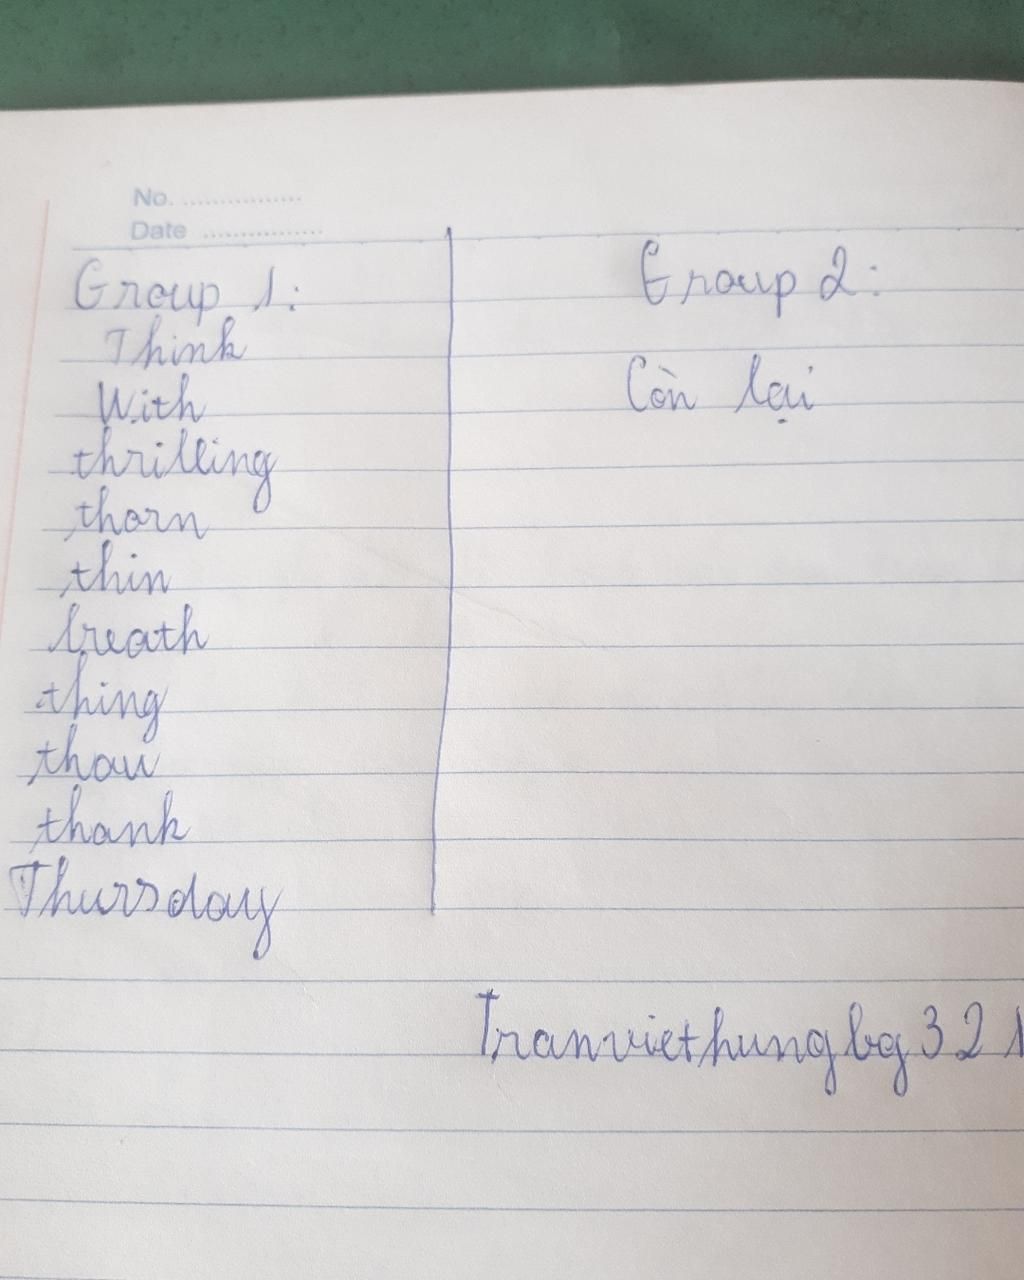 No. ................
Date ................
Group 1:
Think
With
thrilling
thorn
thin
breath
thing
thaw
thank
Thursday
Group 2:
Còn lại
Tranviethungbg321